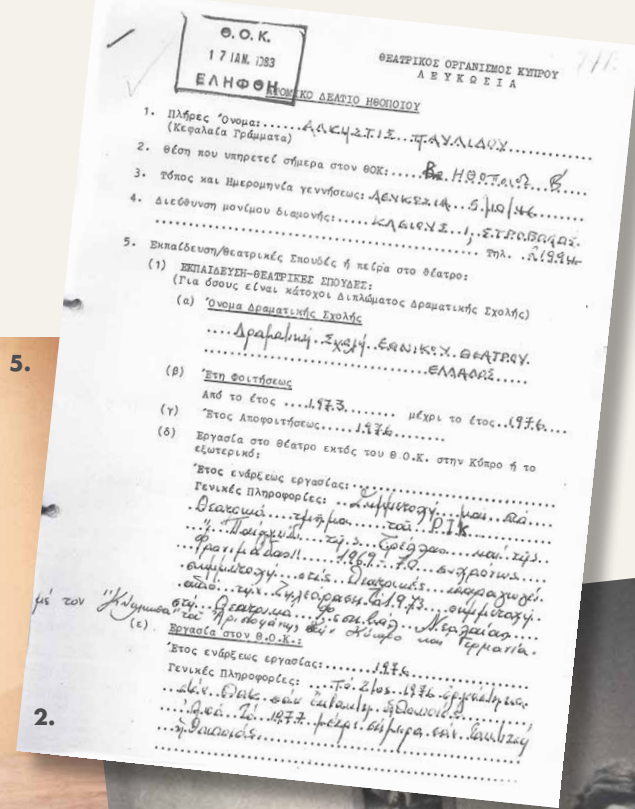 Θ.Ο.Κ.
17 ΙΑΝ. 1983
ΕΛΗΦΘΗ
ΘΕΑΤΡΙΚΟΣ ΟΡΓΑΝΙΣΜΟΣ ΚΥΠΡΟΥ
ΛΕΥΚΩΣΙΑ
ΑΤΟΜΙΚΟ ΔΕΛΤΙΟ ΗΘΟΠΟΙΟΥ
1. Πλήρες Όνομα:......ΑΛΚΗΣΤΙΣ ΠΑΥΛΙΔΟΥ............
(Κεφαλαία Γράμματα)
2. Θέση που υπηρετεί σήμερα στον ΘΟΚ:.... ΗΘΟΠΟΙΟΣ Β'
3. Τόπος και Ημερομηνία γεννήσεως: ΛΕΥΚΩΣΙΑ 5/10/46
4. Διεύθυνση μονίμου διαμονής:......ΚΛΕΙΟΥΣ 1, ΣΤΡΟΒΟΛΟΣ.
Τηλ.
5. Εκπαίδευση/θεατρικές Σπουδές ή πείρα στο θέατρο:
(1) ΕΚΠΑΙΔΕΥΣΗ-ΘΕΑΤΡΙΚΕΣ ΣΠΟΥΔΕΣ:
(Για όσους είναι κάτοχοι Διπλώματος Δραματικής Σχολής)
(α) Όνομα Δραματικής Σχολής
....Δραματική Σχολή ΕΘΝΙΚΟΥ ΘΕΑΤΡΟΥ.
ΕΛΛΑΔΟΣ.....
5.
(β) Έτη Φοιτήσεως
Από το έτος ...1973........ μέχρι το έτος..1976....
(γ) Έτος Αποφοιτήσεως....1976........
(δ) Εργασία στο θέατρο εκτός του Θ.Ο.Κ. στην Κύπρο ή το
εξωτερικό:
Έτος ενάρξεως εργασίας:
Γενικές Πληροφορίες: ..Συμμετοχή και στα
Θεατρικά τμήμα του ΡΙΚ
της τρέλλας και της
φρονιμάδας" 1969-70
συμμετοχή στις θεατρικές
1973 συμμετοχή
στη
με τον Κύπρο και Γερμανία.
(ε) Εργασία στον Θ.Ο.Κ.:
Έτος ενάρξεως εργασίας:........1976.............
Γενικές Πληροφορίες: ...Το έτος 1976 εργάστηκα
στον ΘΟΚ σαν έκτακτη ηθοποιός.
Από το 1977 μέχρι σήμερα σαν τακτική
ηθοποιός.
2.